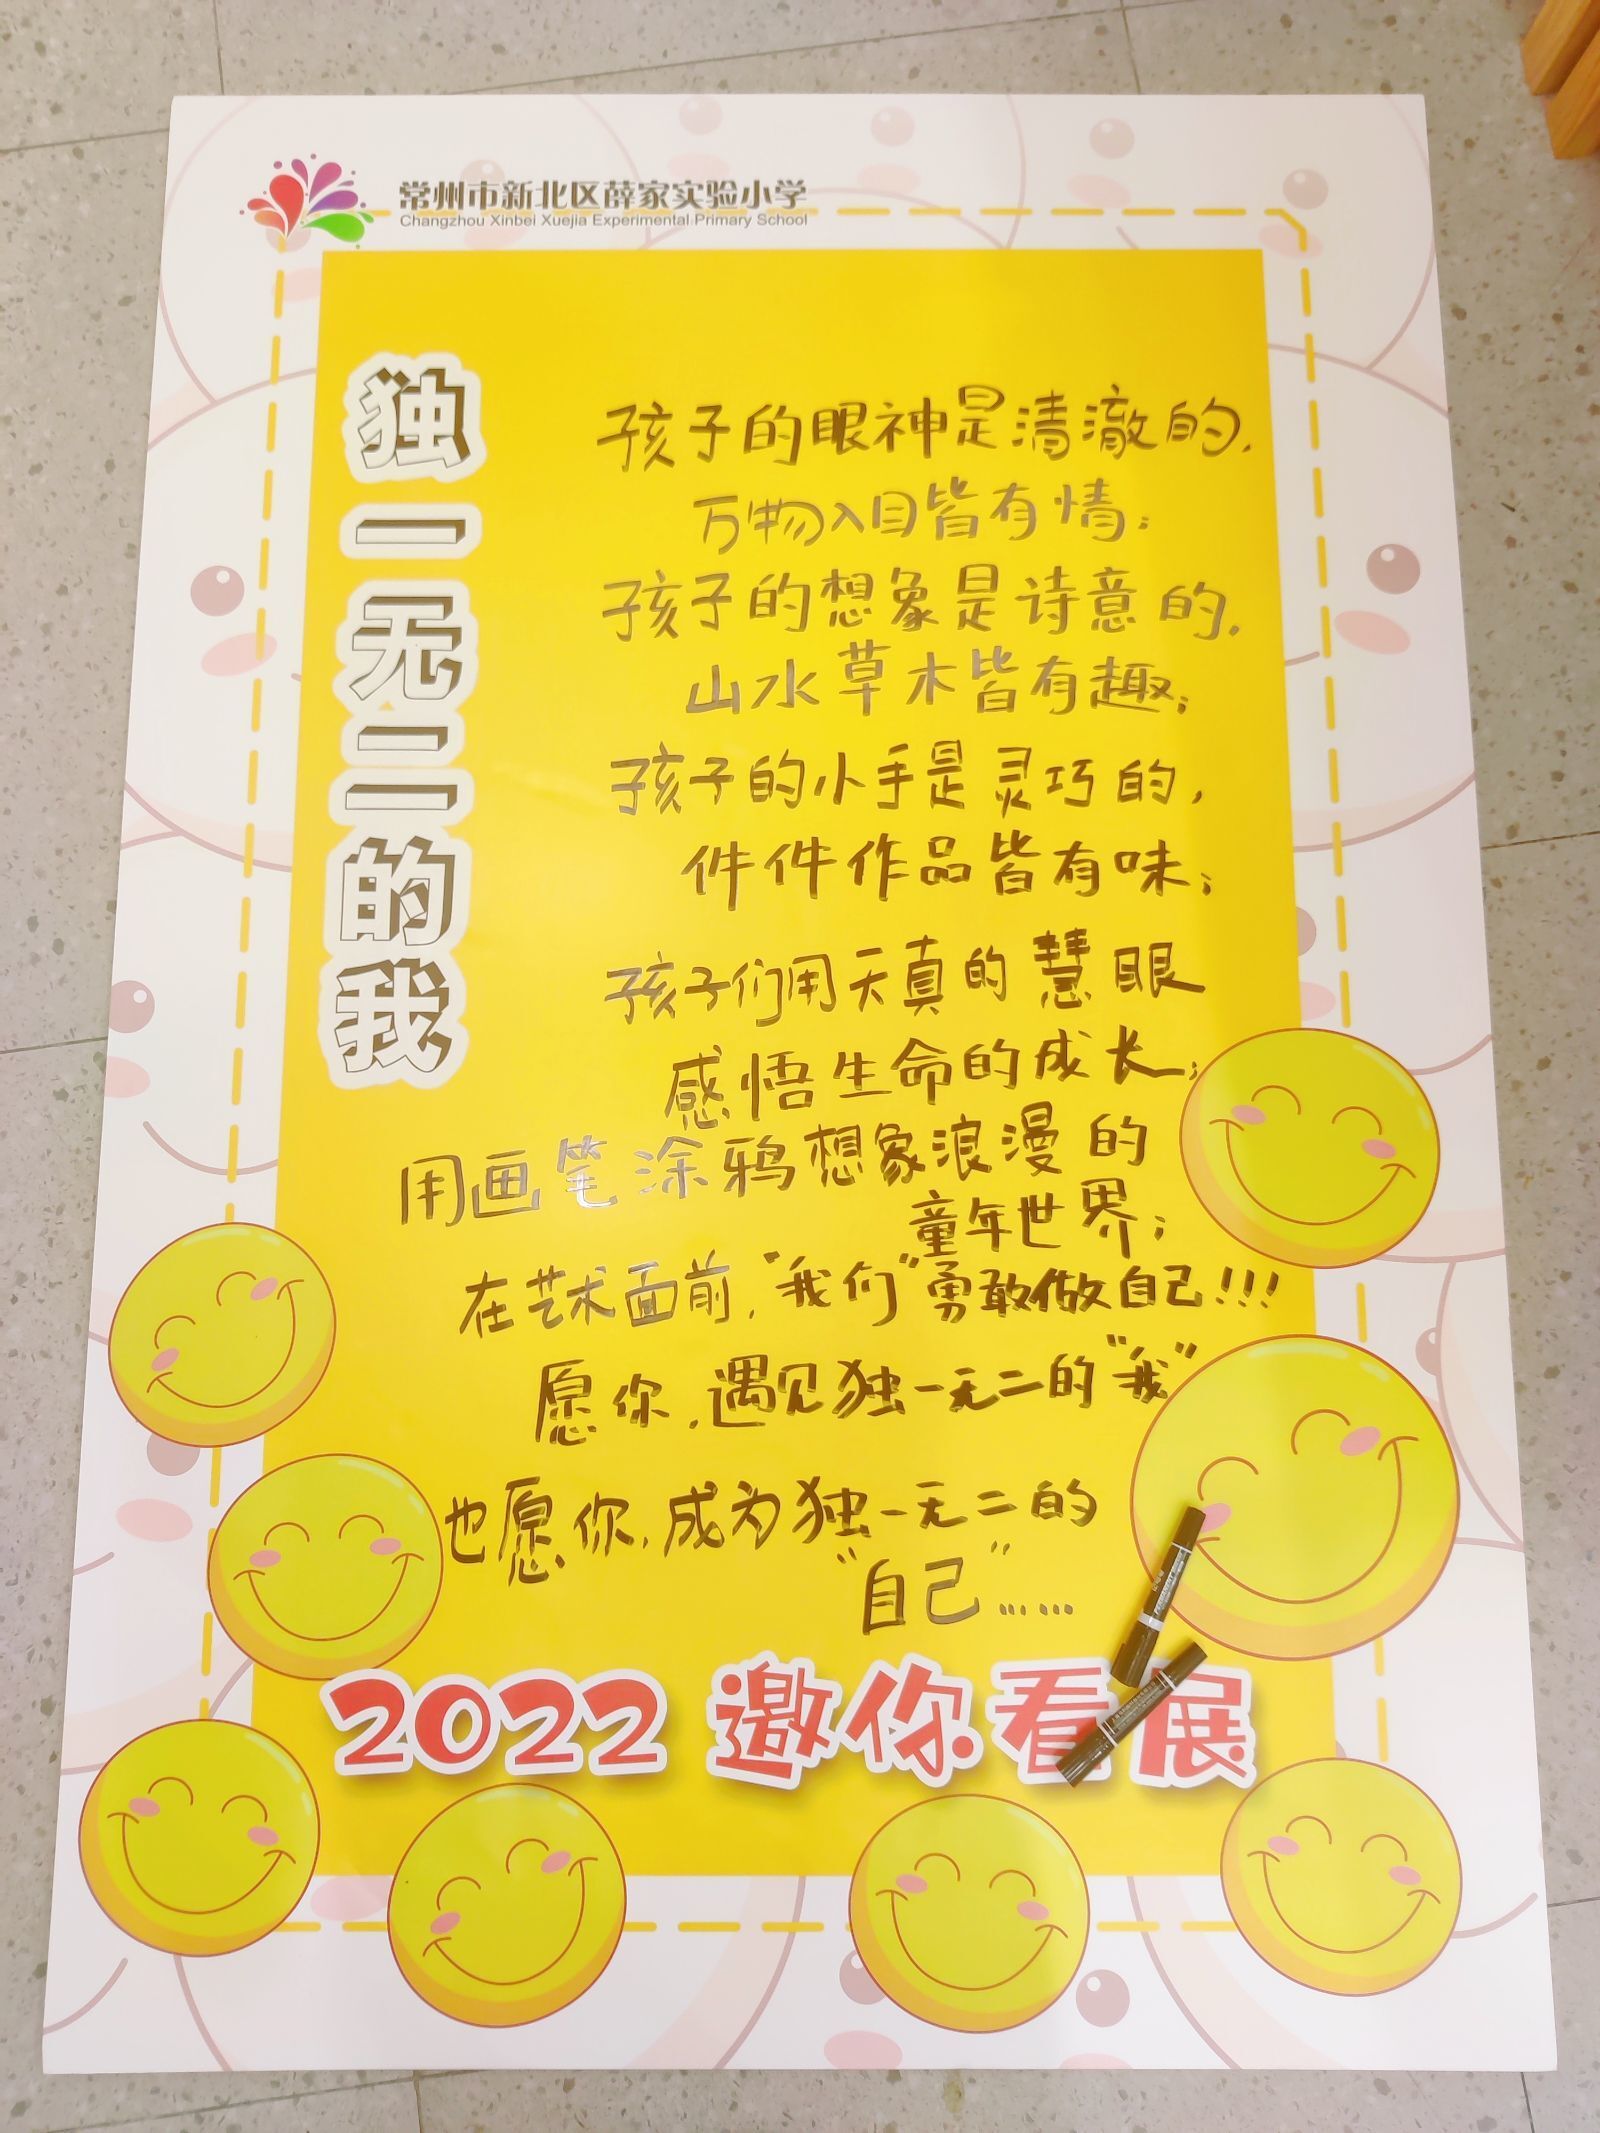 常州市新北区薛家实验小学
Changzhou Xinbei Xuejia Experimental Primary School
独一无二的我
孩子的眼神是清澈的,
万物入目皆有情;
孩子的想象是诗意的,
山水草木皆有趣;
孩子的小手是灵巧的,
件件作品皆有味;
孩子们用天真的慧眼
感悟生命的成长;
用画笔涂鸦想象浪漫的
童年世界;
在艺术面前,“我们”勇敢做自己!!!
愿你,遇见独一无二的“我”
也愿你,成为独一无二的
“自己”……
2022 邀你看展